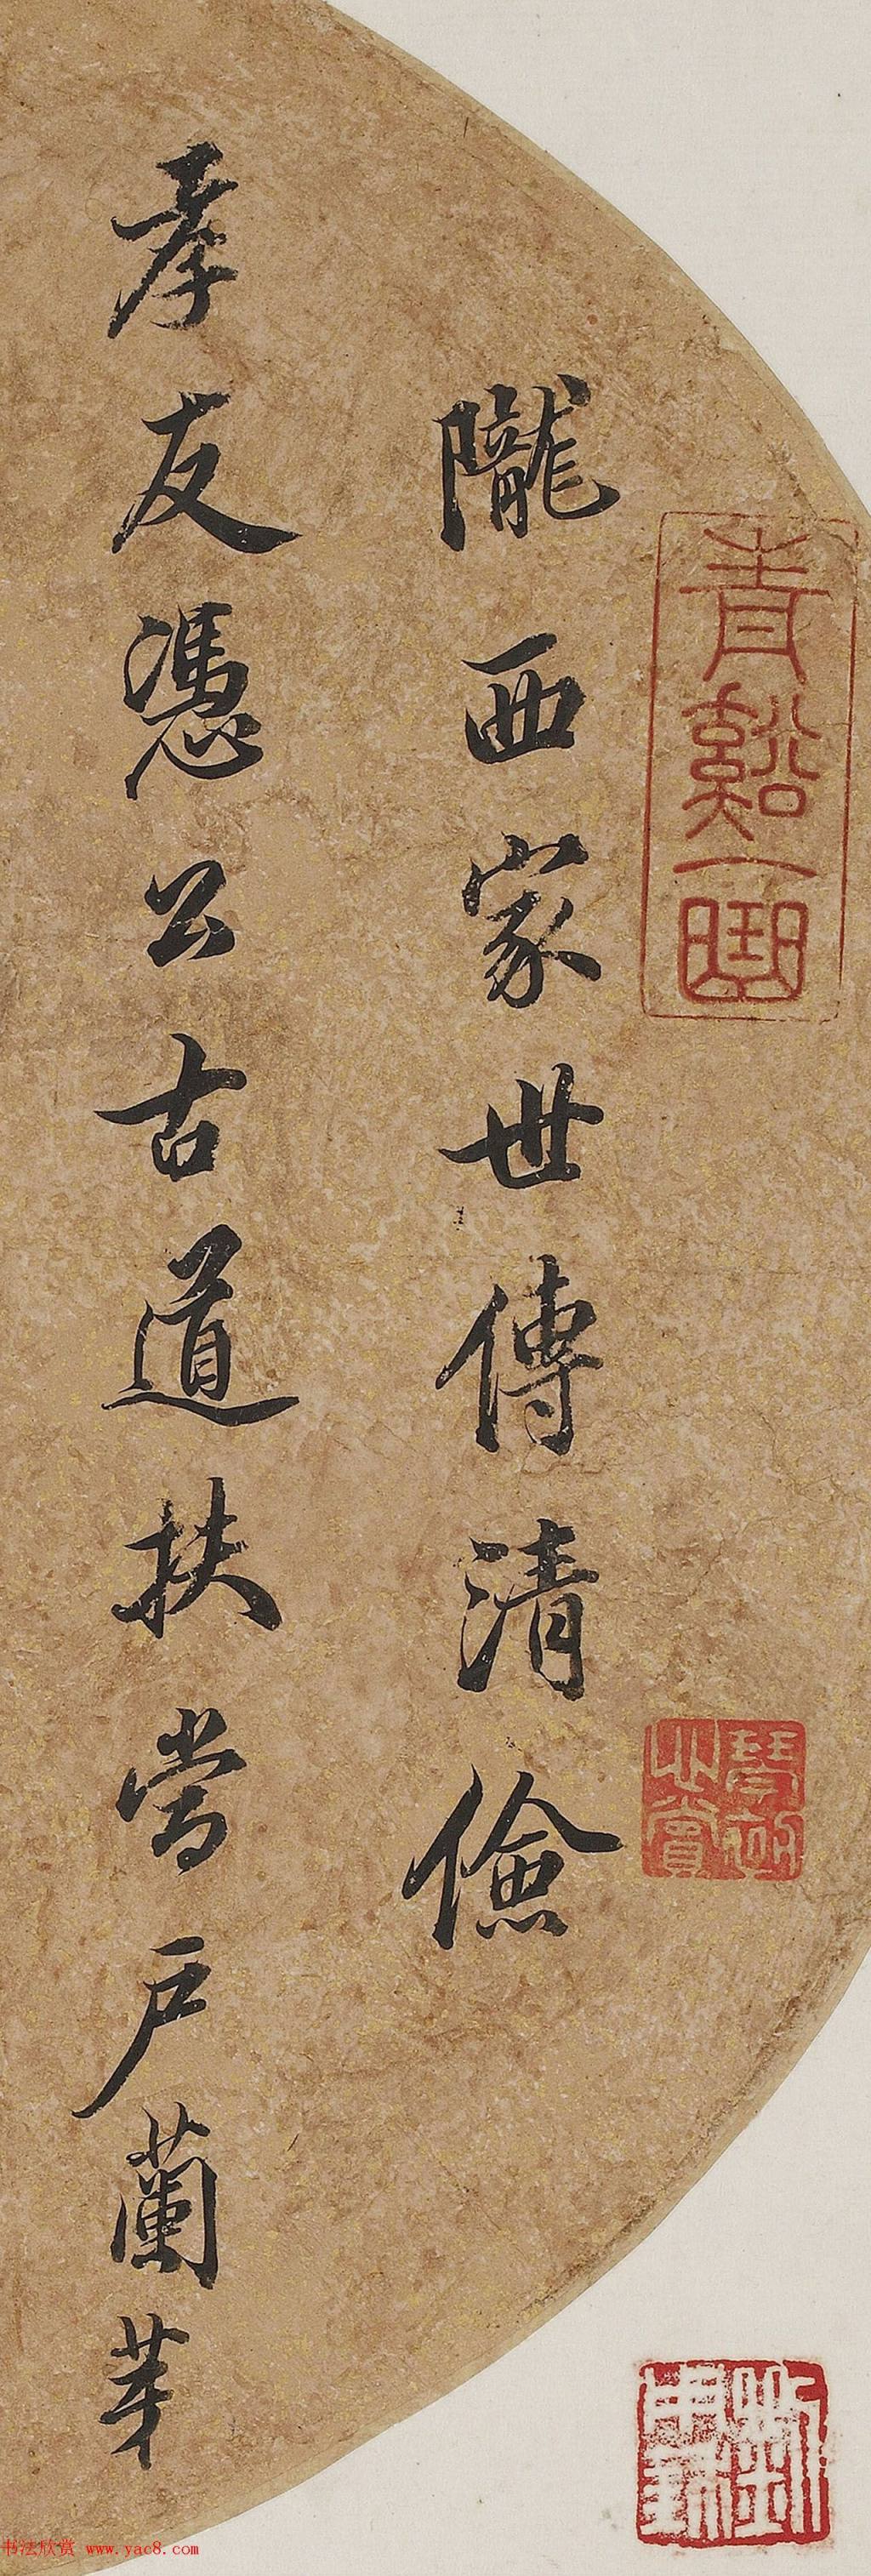 隴西家世傳清儉
孝友憑公古道扶當戶蘭芽
青谿一曲
琴
之賞
書法欣赏 www.yac8.com